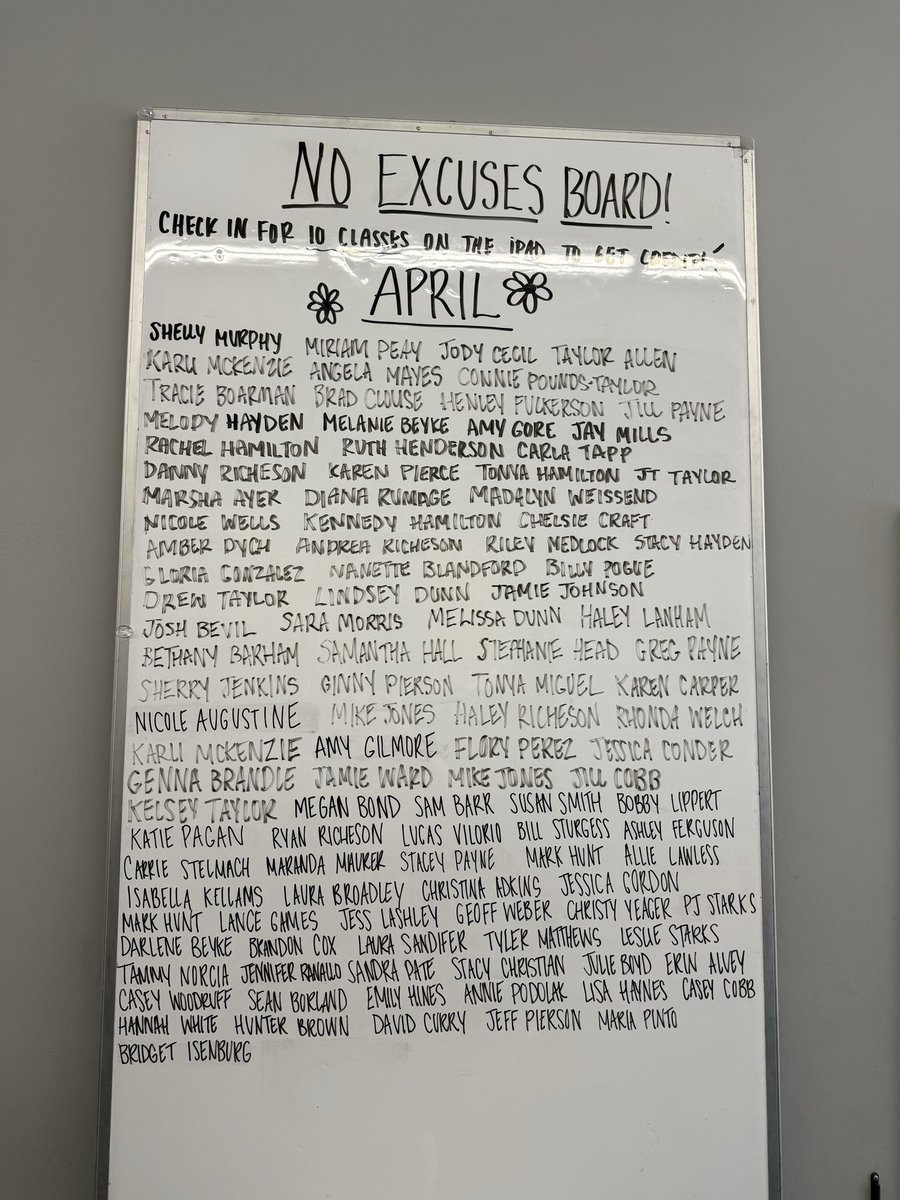 NO EXCUSES BOARD!
CHECK IN FOR 10 CLASSES ON THE iPAD TO GET CREDIT!
APRIL
SHELLY MURPHY MIRIAM PEAY JODY CECIL TAYLOR ALLEN
KARLI MCKENZIE ANGELA MAYES CONNIE POUNDS-TAYLOR
TRACIE BOARMAN BRAD CLOUSE HENLEY FULKERSON JILL PAYNE
MELODY HAYDEN MELANIE BEYKE AMY GORE JAY MILLS
RACHEL HAMILTON RUTH HENDERSON CARLA TAPP
DANNY RICHESON KAREN PIERCE TONYA HAMILTON JT TAYLOR
MARSHA AYER DIANA RUMAGE MADALYN WEISSEND
NICOLE WELLS KENNEDY HAMILTON CHELSIE CRAFT
AMBER DYCH ANDREA RICHESON RILEY MEDLOCK STACY HAYDEN
GLORIA GONZALEZ NANETTE BLANDFORD BILLY POGUE
DREW TAYLOR LINDSEY DUNN JAMIE JOHNSON
JOSH BEVIL SARA MORRIS MELISSA DUNN HALEY LANHAM
BETHANY BARHAM SAMANTHA HALL STEPHANIE HEAD GREG PAYNE
SHERRY JENKINS GINNY PIERSON TONYA MIGUEL KAREN CARPER
NICOLE AUGUSTINE MIKE JONES HALEY RICHESON RHONDA WELCH
KARLI MCKENZIE AMY GILMORE FLORY PEREZ JESSICA CONDER
GENNA BRANDLE JAMIE WARD MIKE JONES JILL COBB
KELSEY TAYLOR MEGAN BOND SAM BARR SUSAN SMITH BOBBY LIPPERT
KATIE PAGAN RYAN RICHESON LUCAS VILORIO BILL STURGESS ASHLEY FERGUSON
CARRIE STELMACH MARANDA MAURER STACEY PAYNE MARK HUNT ALLIE LAWLESS
ISABELLA KELLAMS LAURA BROADLEY CHRISTINA ADKINS JESSICA GORDON
MARK HUNT LANCE GAMES JESS LASHLEY GEOFF WEBER CHRISTY YEAGER PJ STARKS
DARLENE BEYKE BRANDON COX LAURA SANDIFER TYLER MATTHEWS LESLIE STARKS
TAMMY NORCIA JENNIFER RANALLO SANDRA PATE STACY CHRISTIAN JULIE BOYD ERIN ALVEY
CASEY WOODRUFF SEAN BORLAND EMILY HINES ANNIE PODOLAK LISA HAYNES CASEY COBB
HANNAH WHITE HUNTER BROWN DAVID CURRY JEFF PIERSON MARIA PINTO
BRIDGET ISENBURG